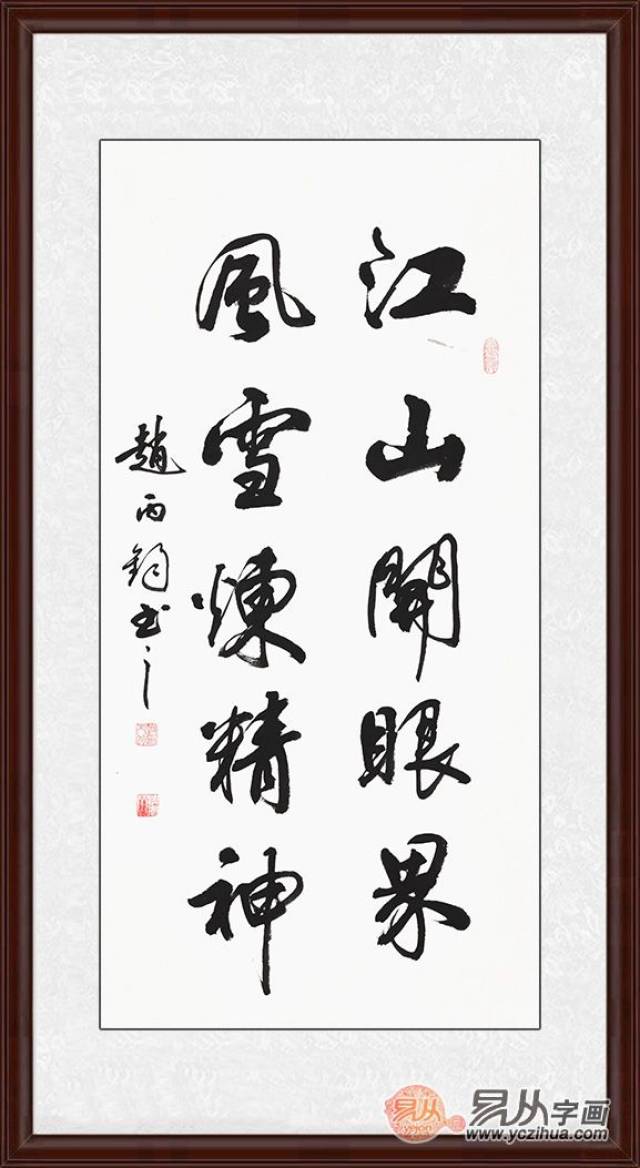 江山開眼界
風雪煉精神
趙丙鈞书之
易从
易从字画
www.yczihua.com